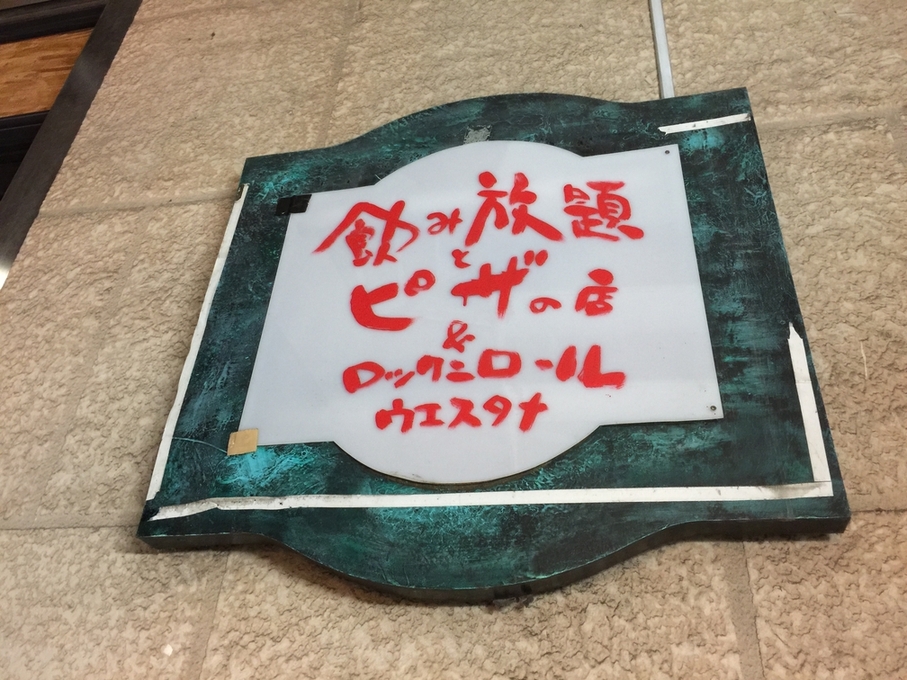 飲み放題
と
ピザの店
&
ロックンロール
ウエスタナ